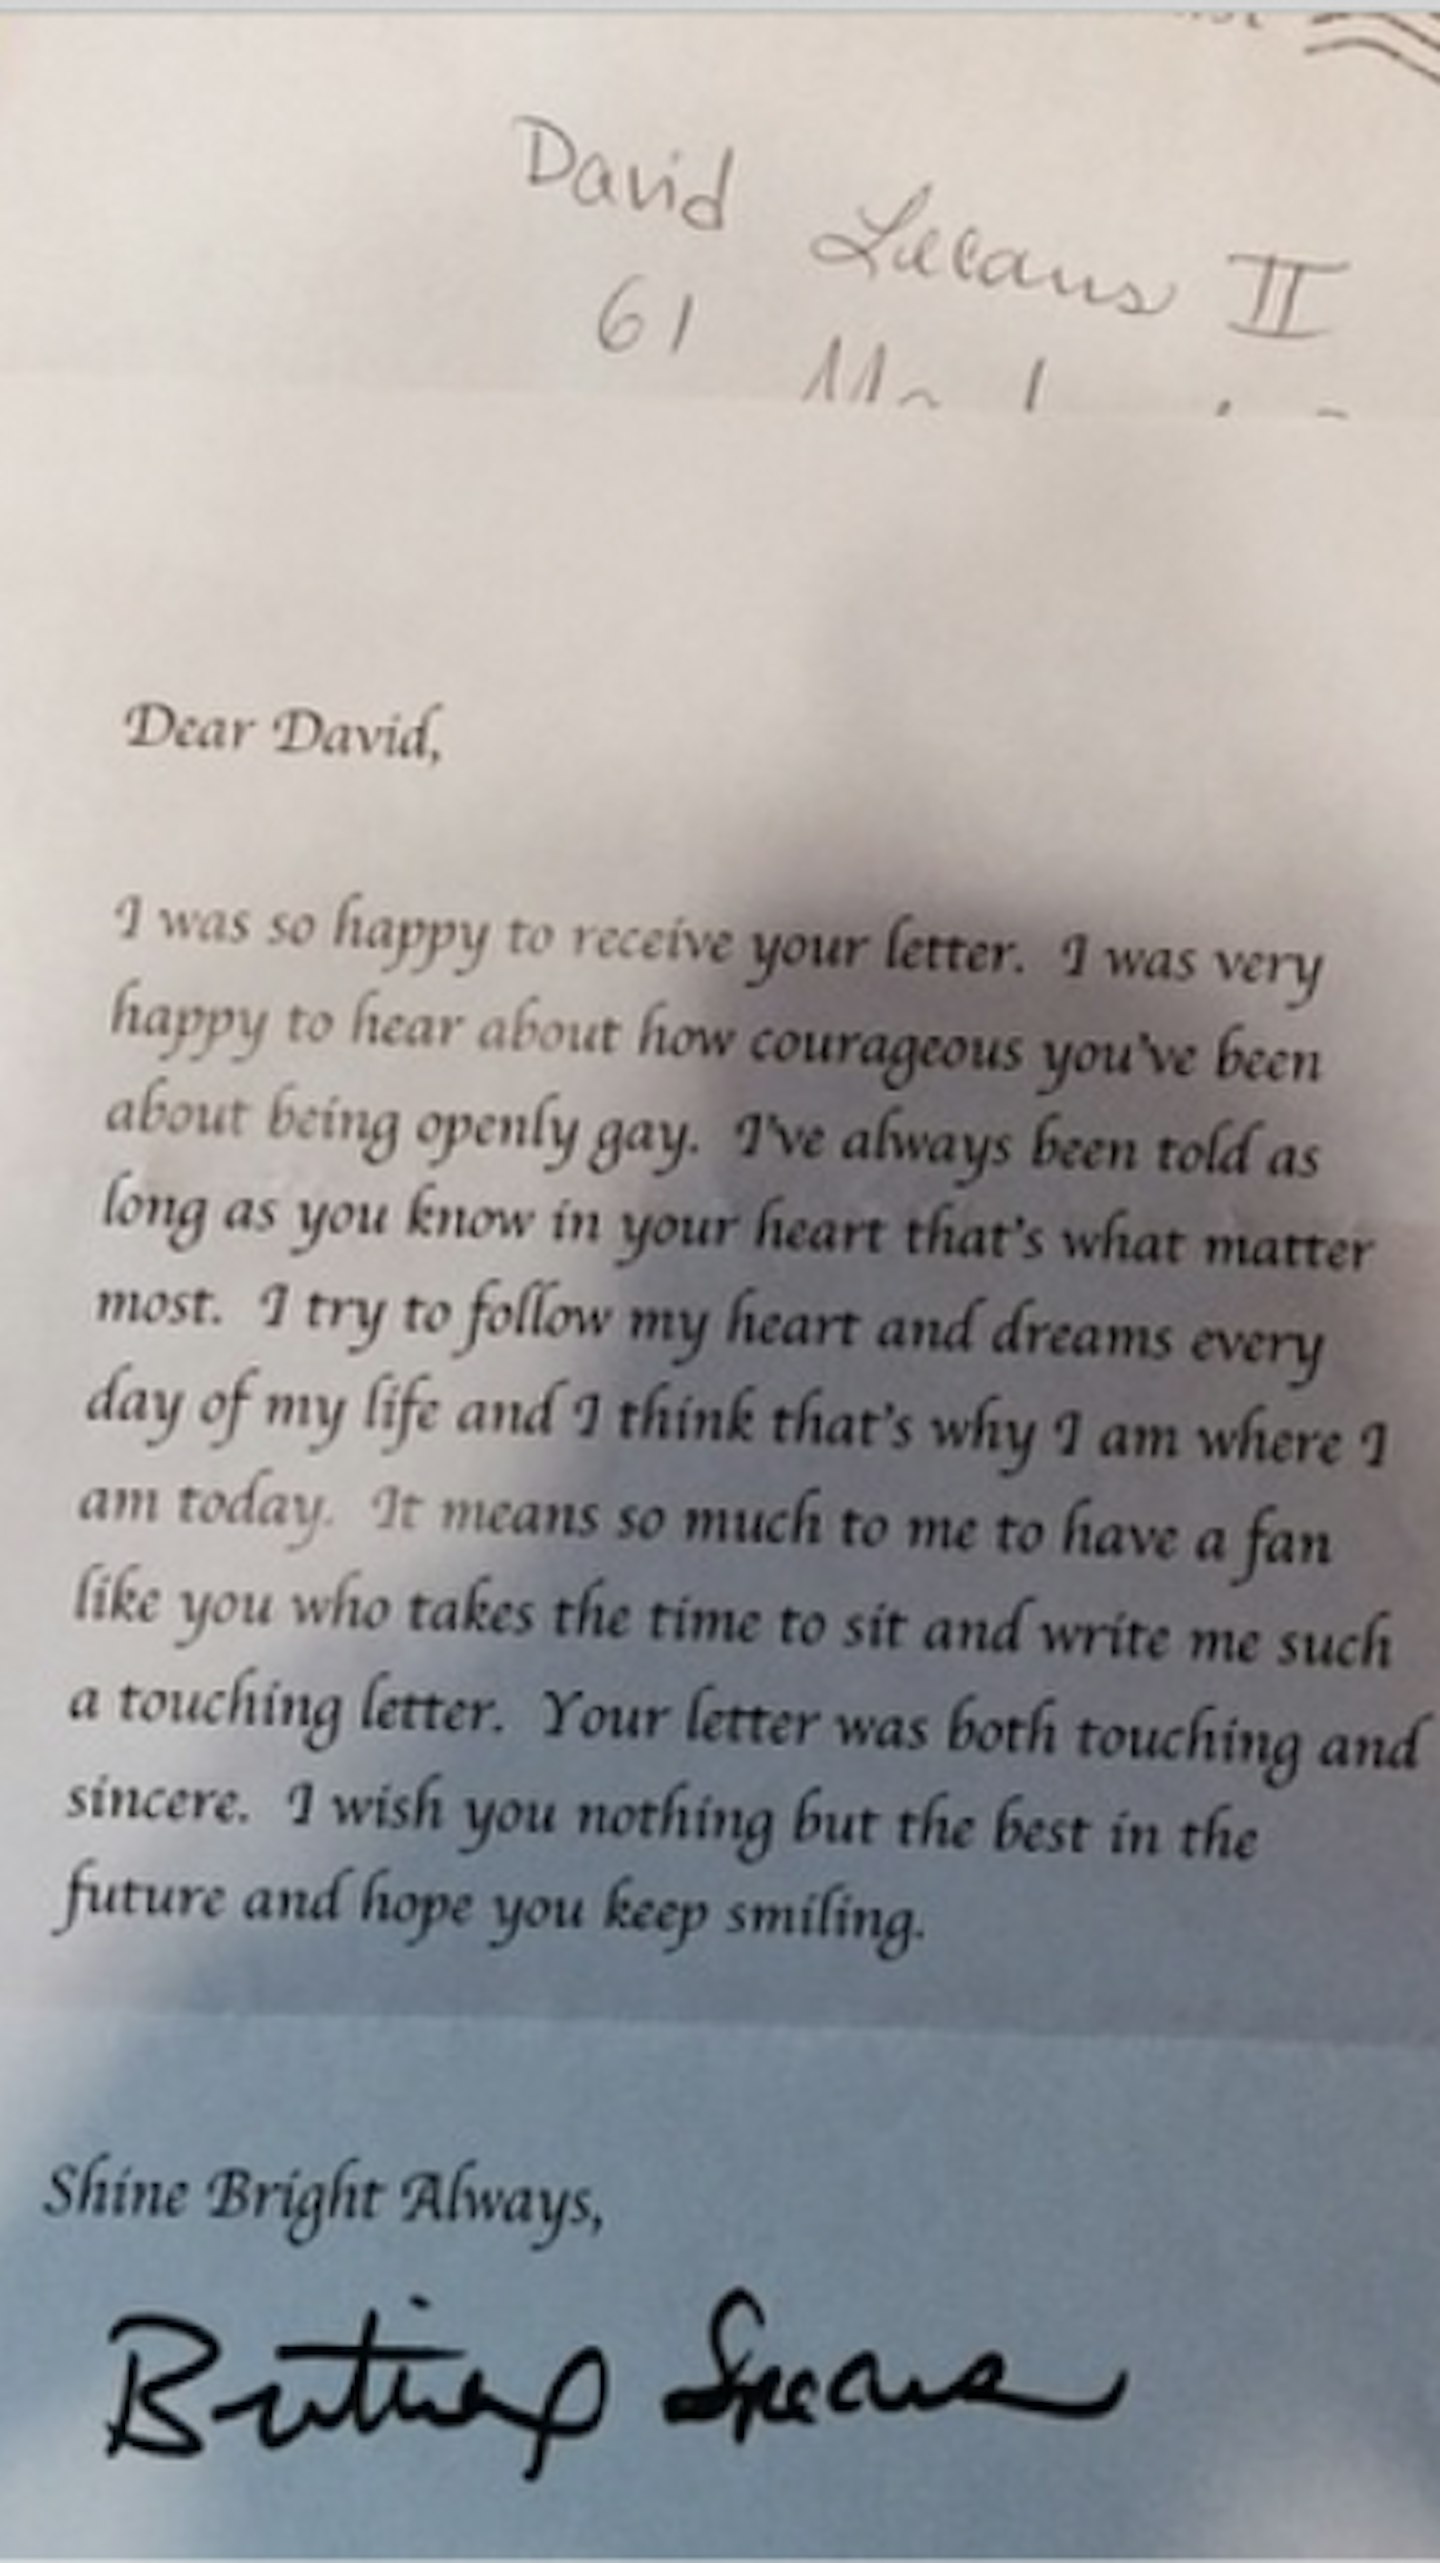 David Lucans II
61
Dear David,
I was so happy to receive your letter. I was very
happy to hear about how courageous you've been
about being openly gay. I've always been told as
long as you know in your heart that's what matter
most. I try to follow my heart and dreams every
day of my life and I think that's why I am where I
am today. It means so much to me to have a fan
like you who takes the time to sit and write me such
a touching letter. Your letter was both touching and
sincere. I wish you nothing but the best in the
future and hope you keep smiling.
Shine Bright Always,
Britney Spears